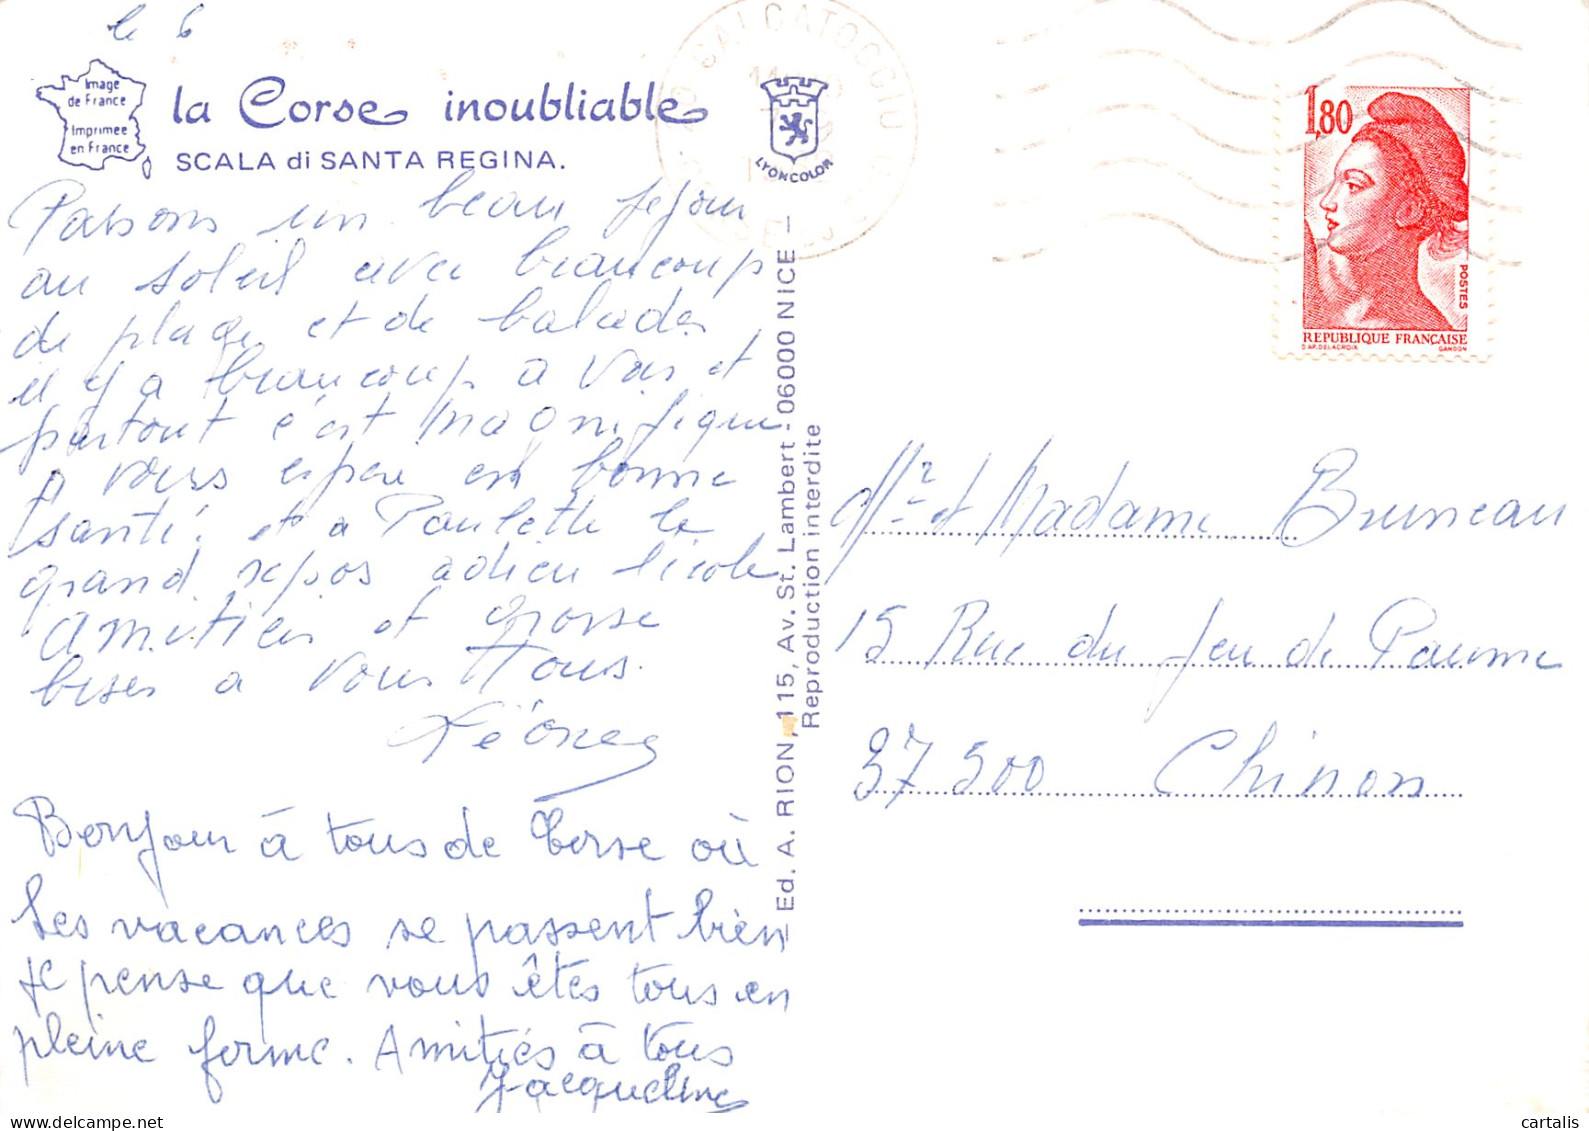 le 6
Image
de France
Imprimée
en France
la Corse inoubliable
SCALA di SANTA REGINA.
Passons un beau sejour
au soleil avec beaucoup
de plage et de balades
il y a beaucoup a voir et
partout c'est magnifique
vous espere en bonne
santé. et a Paulette le
grand repos adieu l'ecole
amities et grosse
bises a vous tous.
Bonjour à tous de Corse où
les vacances se passent bien
je pense que vous êtes tous en
pleine forme. Amitiés à tous
Jacqueline
LYONCOLOR
Ed. A. RION, 115, Av. St. Lambert - 06000 NICE -
Reproduction interdite
CALCATOGGIO
1,80
POSTES
REPUBLIQUE FRANÇAISE
D'AP. DELACROIX GANDON
Mr et Madame Bruneau
15 Rue du Jeu de Paume
37500 Chinon
cartalis
delcampe.net